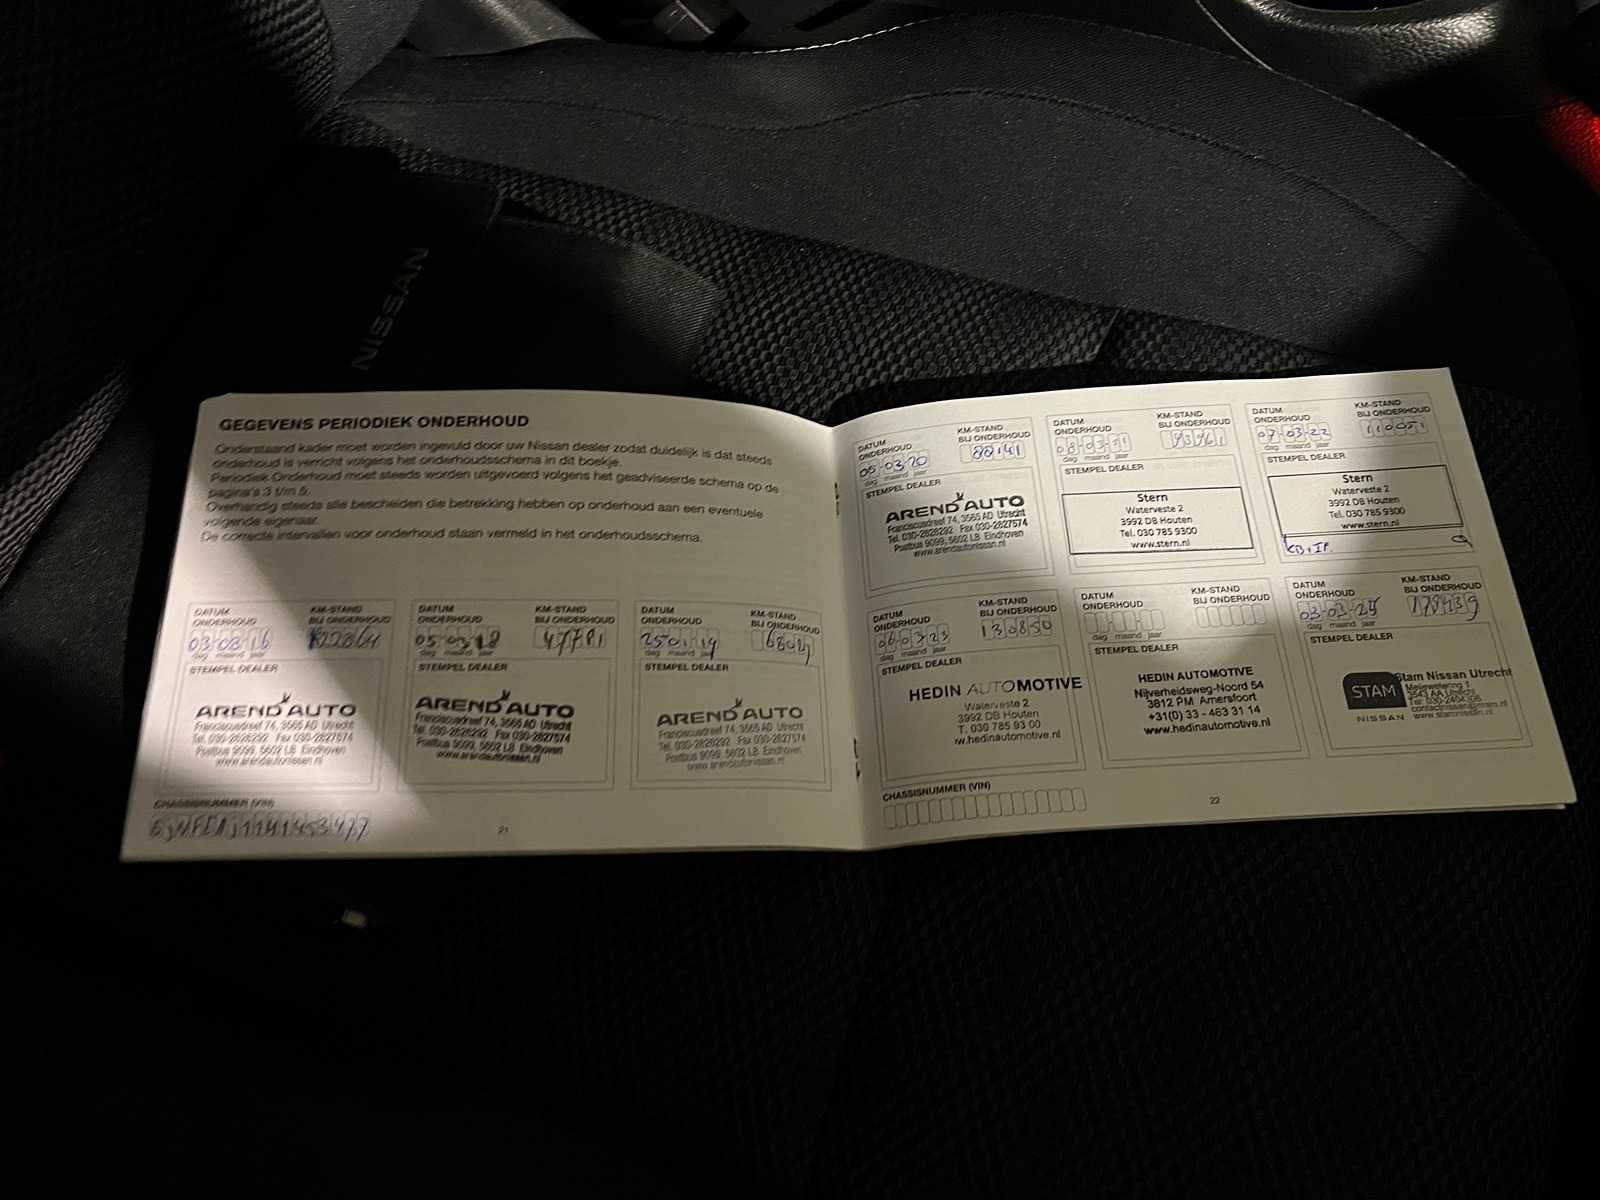 NISSAN
GEGEVENS PERIODIEK ONDERHOUD
Onderstaand kader moet worden ingevuld door uw Nissan dealer zodat duidelijk is dat steeds
onderhoud is verricht volgens het onderhoudsschema in dit boekje.
Periodiek Onderhoud moet steeds worden uitgevoerd volgens het geadviseerde schema op de
pagina's 3 t/m 5.
Overhandig steeds alle bescheiden die betrekking hebben op onderhoud aan een eventuele
volgende eigenaar.
De correcte intervallen voor onderhoud staan vermeld in het onderhoudsschema.
DATUM ONDERHOUD
KM-STAND BIJ ONDERHOUD
03-08-16
dag maand jaar
STEMPEL DEALER
AREND AUTO
Franciscusdreef 74, 3565 AD Utrecht
Tel. 030-2628292 Fax 030-2627574
Postbus 9099, 5602 LB Eindhoven
www.arendautonissan.nl
DATUM ONDERHOUD
KM-STAND BIJ ONDERHOUD
05-03-18 47781
dag maand jaar
STEMPEL DEALER
AREND AUTO
Franciscusdreef 74, 3565 AD Utrecht
Tel. 030-2628292 Fax 030-2627574
Postbus 9099, 5602 LB Eindhoven
www.arendautonissan.nl
DATUM ONDERHOUD
KM-STAND BIJ ONDERHOUD
25-01-19
dag maand jaar
STEMPEL DEALER
AREND AUTO
Franciscusdreef 74, 3565 AD Utrecht
Tel. 030-2628292 Fax 030-2627574
Postbus 9099, 5602 LB Eindhoven
www.arendautonissan.nl
CHASSISNUMMER (VIN)
21
DATUM ONDERHOUD
KM-STAND BIJ ONDERHOUD
05-03-20 88141
dag maand jaar
STEMPEL DEALER
AREND AUTO
Franciscusdreef 74, 3565 AD Utrecht
Tel. 030-2628292 Fax 030-2627574
Postbus 9099, 5602 LB Eindhoven
www.arendautonissan.nl
DATUM ONDERHOUD
KM-STAND BIJ ONDERHOUD
08-03-21
dag maand jaar
STEMPEL DEALER
Stern
Waterveste 2
3992 DB Houten
Tel. 030 785 9300
www.stern.nl
DATUM ONDERHOUD
KM-STAND BIJ ONDERHOUD
07-03-22 110051
dag maand jaar
STEMPEL DEALER
Stern
Waterveste 2
3992 DB Houten
Tel. 030 785 9300
www.stern.nl
DATUM ONDERHOUD
KM-STAND BIJ ONDERHOUD
06-03-23 130850
dag maand jaar
STEMPEL DEALER
HEDIN AUTOMOTIVE
Waterveste 2
3992 DB Houten
T. 030 785 93 00
w.hedinautomotive.nl
DATUM ONDERHOUD
KM-STAND BIJ ONDERHOUD
dag maand jaar
STEMPEL DEALER
HEDIN AUTOMOTIVE
Nijverheidsweg-Noord 54
3812 PM Amersfoort
+31(0) 33 - 463 31 14
www.hedinautomotive.nl
DATUM ONDERHOUD
KM-STAND BIJ ONDERHOUD
03-03-25 178239
dag maand jaar
STEMPEL DEALER
STAM
NISSAN
Stam Nissan Utrecht
Meijewetering 1
3543 AA Utrecht
www.stamnissan.nl
CHASSISNUMMER (VIN)
22